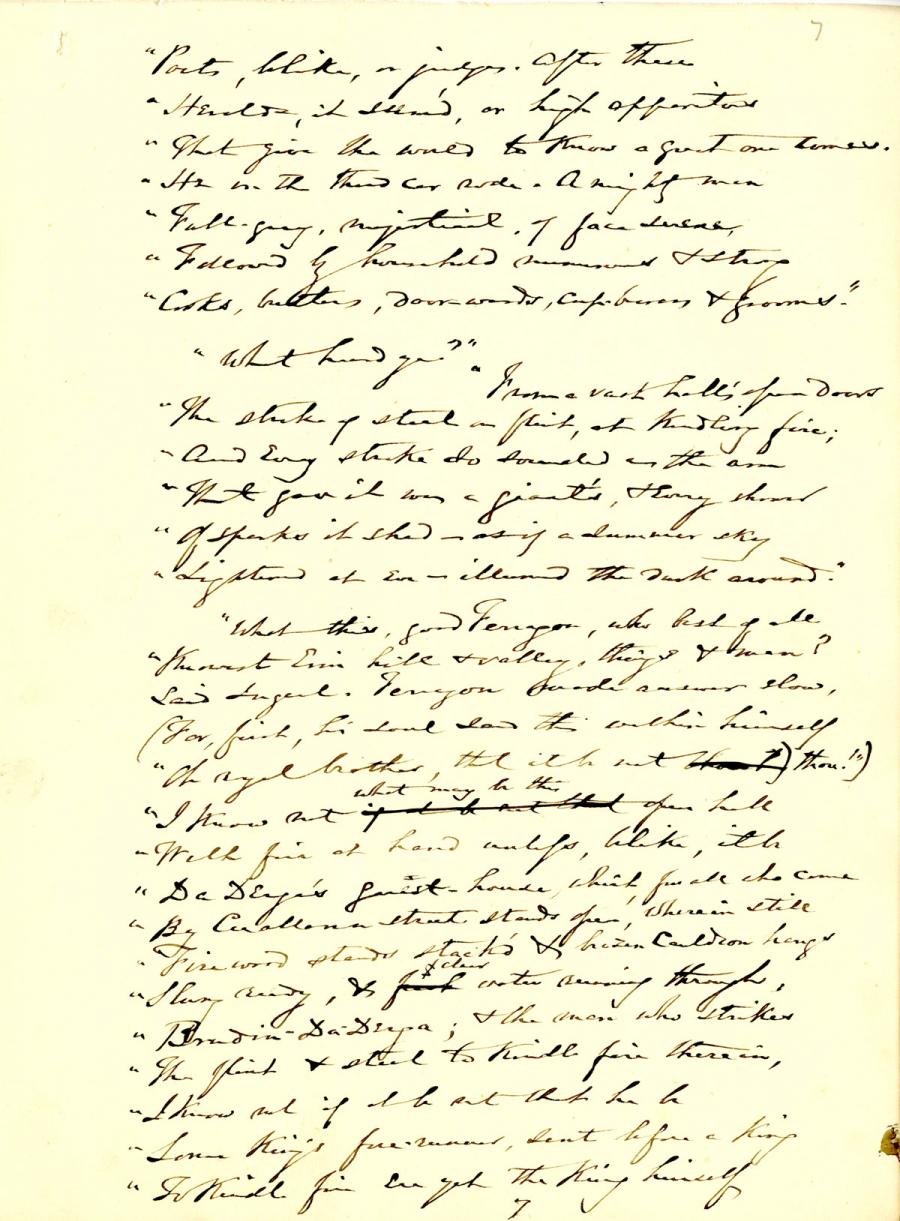 7
"Poets, belike, or judges. After these
"Heralds, it seem'd, or high apparitors
"That give the world to know a great one comes.
"He in the third car rode. A mighty man
"Full-gray, majestical, of face serene,
"Follow'd by household numerous & strong
"Cooks, butlers, door-wards, cup-bearers & grooms."
"What heard ye?"
"From a vast hall's open doors
"The stroke of steel on flint, at kindling fire;
"And every stroke so sounded as the arm
"That gave it was a giant's, & every shower
"Of sparks it shed – as if a summer sky
"Lighten'd at eve – illumed the dusk around."
"What this, good Ferragon, who best of all
"Knowest Erin hill & valley, things & men?
Said Ingcel. Ferragon made answer slow,
(For, first, his soul said this within himself
"Oh royal brother, that it be not thou!")
what may be this
"I know not if it be not that open hall
"With fire at hand unless, belike, it be
"Da Derga's guest-house, which, for all who come
"By Cualann street stands open, wherein still
"Firewood stands stack'd & brazen Cauldron hangs
& clear
"Slung ready, & water running through,
"Bruidin-Da-Derga; & the man who strikes
"The flint & steel to kindle fire therein,
"I know not if it be not that he be
"Some King's fore-runner, sent before a King
"To kindle fire ere yet the King himself
7